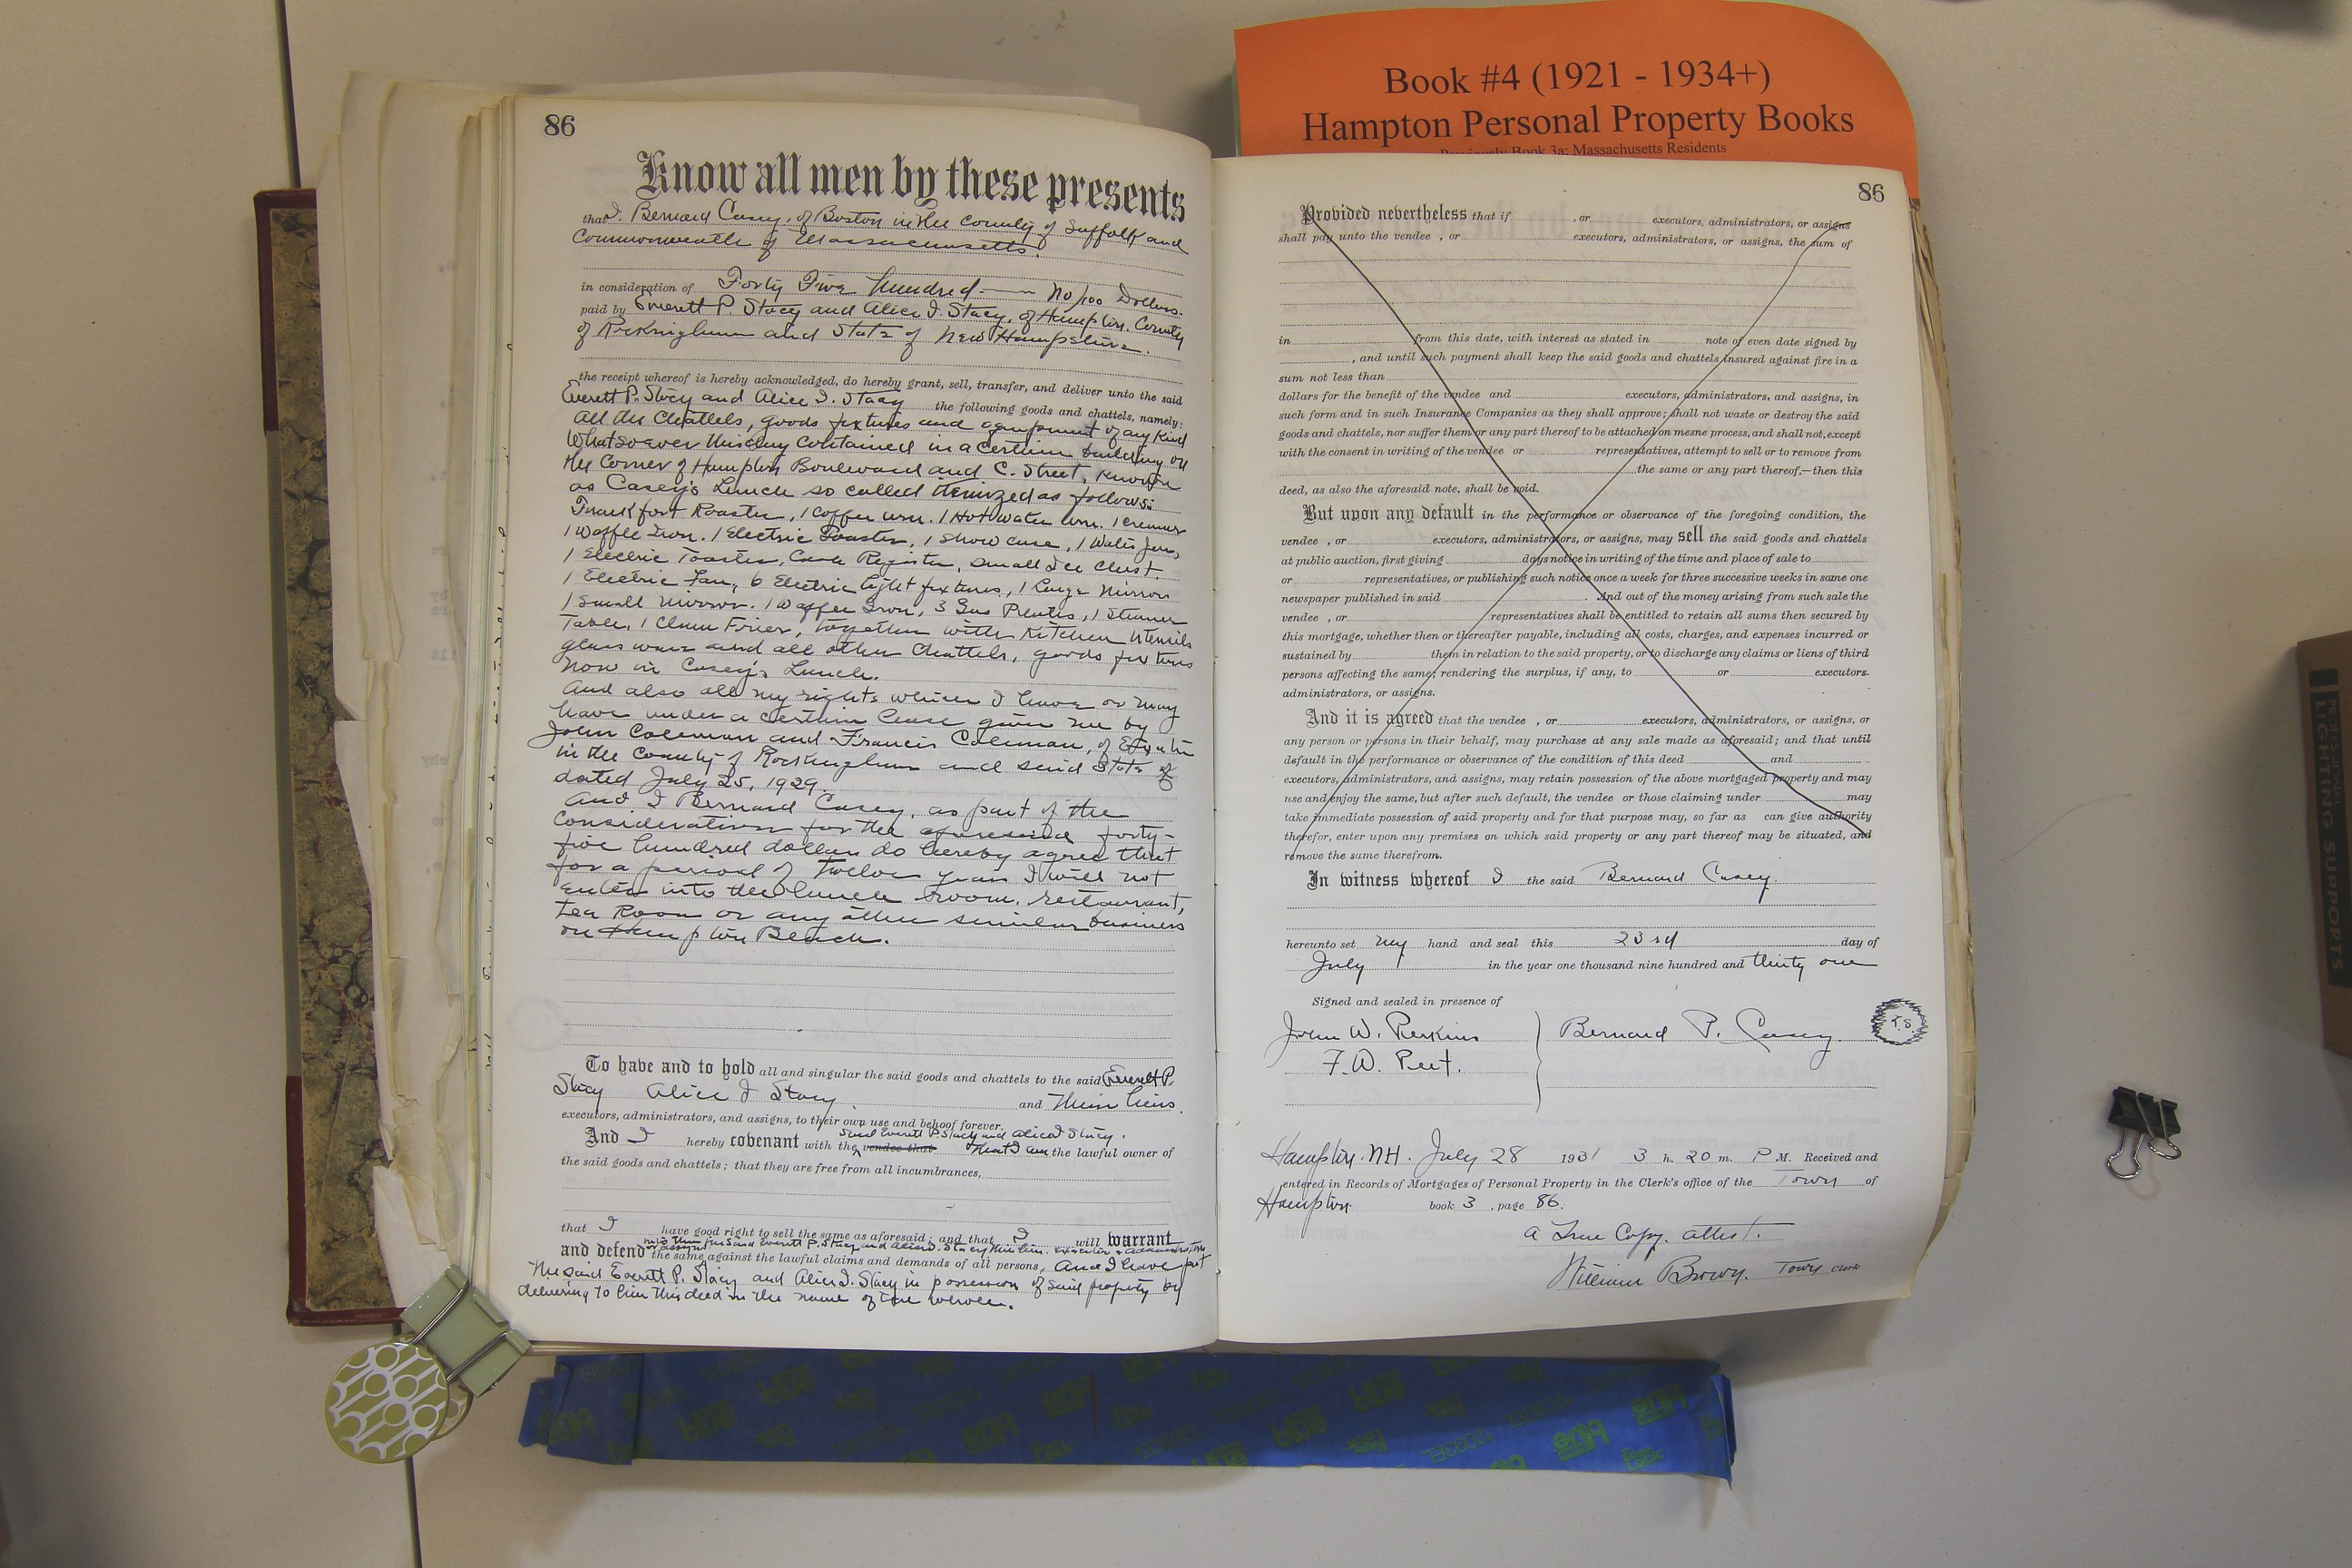 Book #4 (1921 - 1934+)
Hampton Personal Property Books
Previously Book 3a: Massachusetts Residents
86
Know all men by these presents
that I, Bernard Casey, of Boston in the County of Suffolk and
Commonwealth of Massachusetts.
in consideration of Forty Five Hundred — no/100 Dollars.
paid by Everett P. Stacy and Alice I. Stacy, of Hampton, County
of Rockingham and State of New Hampshire.
the receipt whereof is hereby acknowledged, do hereby grant, sell, transfer, and deliver unto the said
Everett P. Stacy and Alice I. Stacy the following goods and chattels, namely:
All the Chattels, goods fixtures and equipment of any Kind
Whatsoever this day contained in a certain building on
the Corner of Hampton Boulevard and C. Street, Known
as Casey's Lunch so called itemized as follows:
Frankfort Roaster, 1 Coffee urn. 1 Hot Water urn. 1 creamer
1 Waffle Iron. 1 Electric Toaster, 1 Show case, 1 Water Jar,
1 Electric Toaster, Cash Register, Small Ice Chest.
1 Electric Fan, 6 Electric light fixtures, 1 Large Mirror
1 Small Mirror. 1 Waffle Iron, 3 Gas Plates, 1 Steamer
Table. 1 Clam Frier, together with Kitchen Utensils
glass ware and all other Chattels, goods fixtures
now in Casey's Lunch.
And also all my rights which I have or may
have under a certain lease given me by
John Coleman and Francis Coleman, of Exeter
in the County of Rockingham and said State of
dated July 25, 1929.
And I Bernard Casey, as part of the
consideration for the aforesaid forty-
five hundred dollars do hereby agree that
for a period of twelve years I will not
enter into the lunch room, restaurant,
tea Room or any other similar business
on Hampton Beach.
To have and to hold all and singular the said goods and chattels to the said Everett P.
Stacy Alice I Stacy and Their heirs.
executors, administrators, and assigns, to their own use and behoof forever.
said Everett P. Stacy and Alice I Stacy.
And I hereby covenant with the vendee that That I am the lawful owner of
the said goods and chattels; that they are free from all incumbrances,
that I have good right to sell the same as aforesaid; and that I will warrant
and defend the same against the lawful claims and demands of all persons, And I have put
the said Everett P. Stacy and Alice I. Stacy in possession of said property by
delivering to him this deed in the name of the whole.
86
Provided nevertheless that if , or executors, administrators, or assigns
shall pay unto the vendee , or executors, administrators, or assigns, the sum of
in from this date, with interest as stated in note of even date signed by
, and until such payment shall keep the said goods and chattels insured against fire in a
sum not less than
dollars for the benefit of the vendee and executors, administrators, and assigns, in
such form and in such Insurance Companies as they shall approve; shall not waste or destroy the said
goods and chattels, nor suffer them or any part thereof to be attached on mesne process, and shall not, except
with the consent in writing of the vendee or representatives, attempt to sell or to remove from
the same or any part thereof,—then this
deed, as also the aforesaid note, shall be void.
But upon any default in the performance or observance of the foregoing condition, the
vendee , or executors, administrators, or assigns, may sell the said goods and chattels
at public auction, first giving days notice in writing of the time and place of sale to
or representatives, or publishing such notice once a week for three successive weeks in some one
newspaper published in said . And out of the money arising from such sale the
vendee , or representatives shall be entitled to retain all sums then secured by
this mortgage, whether then or thereafter payable, including all costs, charges, and expenses incurred or
sustained by them in relation to the said property, or to discharge any claims or liens of third
persons affecting the same; rendering the surplus, if any, to or executors.
administrators, or assigns.
And it is agreed that the vendee , or executors, administrators, or assigns, or
any person or persons in their behalf, may purchase at any sale made as aforesaid; and that until
default in the performance or observance of the condition of this deed and
executors, administrators, and assigns, may retain possession of the above mortgaged property and may
use and enjoy the same, but after such default, the vendee or those claiming under may
take immediate possession of said property and for that purpose may, so far as can give authority
therefor, enter upon any premises on which said property or any part thereof may be situated, and
remove the same therefrom.
In witness whereof I the said Bernard Casey.
hereunto set my hand and seal this 23rd day of
July in the year one thousand nine hundred and thirty one
Signed and sealed in presence of
John W. Perkins Bernard P. Casey. L.S.
F. W. Peet.
Hampton. NH. July 28 1931 3 h. 20 m. P M. Received and
entered in Records of Mortgages of Personal Property in the Clerk's office of the Town of
Hampton book 3 , page 86.
A True Copy. attest.
William Brown. Town Clerk
PROFESSIONAL
LIGHTING SUPPORTS